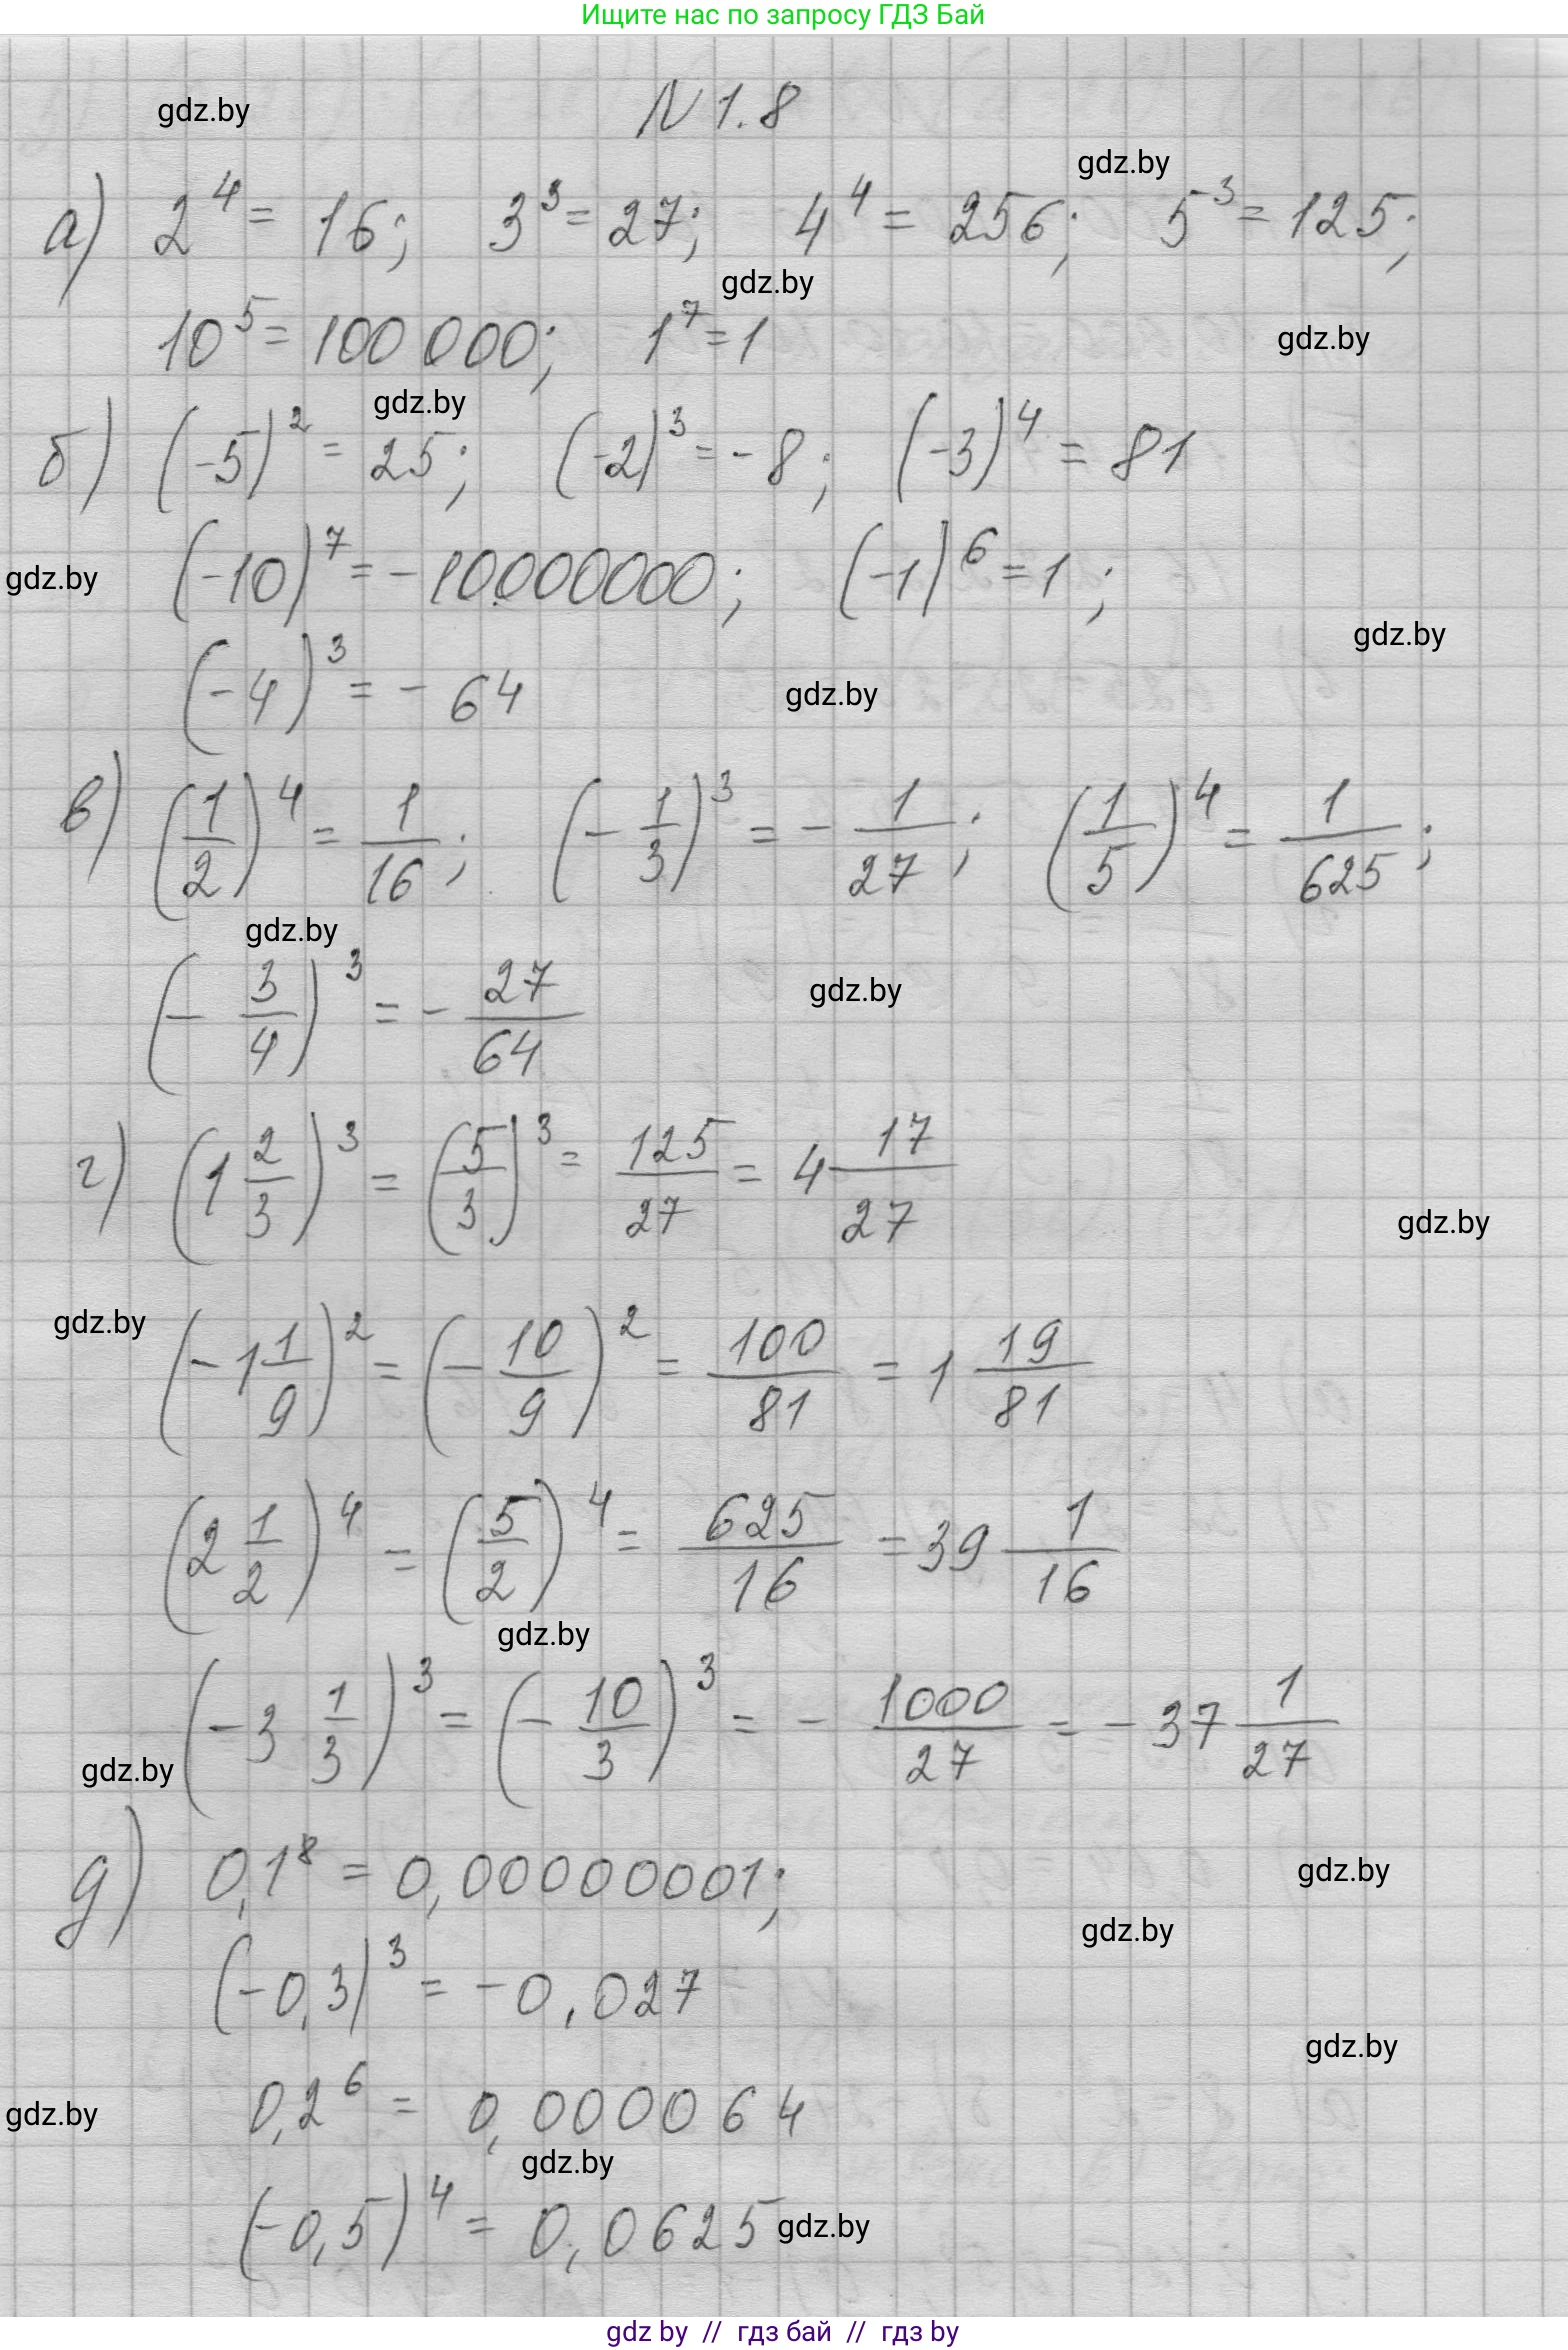 Ищите нас по запросу ГДЗ Бай
N 1.8
gdz.by
gdz.by
а) 2^4 = 16; 3^3 = 27; 4^4 = 256; 5^3 = 125;
gdz.by
10^5 = 100 000; 1^7 = 1
gdz.by
gdz.by
б) (-5)^2 = 25; (-2)^3 = -8; (-3)^4 = 81
gdz.by
(-10)^7 = -10000000; (-1)^6 = 1;
gdz.by
(-4)^3 = -64
gdz.by
в) (1/2)^4 = 1/16; (-1/3)^3 = -1/27; (1/5)^4 = 1/625;
gdz.by
(-3/4)^3 = -27/64
gdz.by
г) (1 2/3)^3 = (5/3)^3 = 125/27 = 4 17/27
gdz.by
gdz.by
(-1 1/9)^2 = (-10/9)^2 = 100/81 = 1 19/81
(2 1/2)^4 = (5/2)^4 = 625/16 = 39 1/16
gdz.by
(-3 1/3)^3 = (-10/3)^3 = -1000/27 = -37 1/27
gdz.by
д) 0,1^8 = 0,00000001;
gdz.by
gdz.by
(-0,3)^3 = -0,027
gdz.by
0,2^6 = 0,000064
gdz.by
gdz.by
(-0,5)^4 = 0,0625
gdz.by
gdz by // гдз бай // гдз by